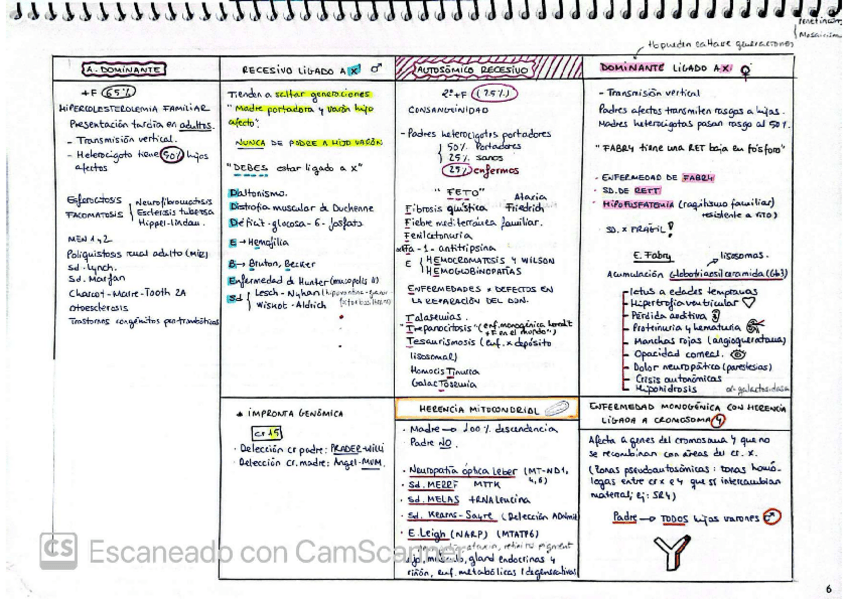 No pueden saltarse generaciones
A. DOMINANTE
+F (65%)
HIPERCOLESTEROLEMIA FAMILIAR
Presentación tardía en adultos.
- Transmisión vertical.
- Heterocigoto tiene 50% hijos
afectos
Esferocitosis
FACOMATOSIS
Neurofibromatosis
Esclerosis tuberosa
Hippel-Lindau.
MEN 1 y 2
Poliquistosis renal adulto
Sd. Lynch.
Sd. Marfan
Charcot-Marie-Tooth 2A
Otoesclerosis
Trastornos congénitos
RECESIVO LIGADO A X ♂
Tienden a saltar generaciones
"Madre portadora y varón hijo
afecto".
NUNCA DE PADRE A HIJO VARÓN
"DEBES estar ligado a X"
Daltonismo.
Distrofia muscular de Duchenne
Déficit-glucosa-6-fosfato
E → Hemofilia
B → Bruton, Becker
Enfermedad de Hunter
Sd
Lesch-Nyhan
Wiskot-Aldrich
AUTOSÓMICO RECESIVO
2º +F (25%)
CONSANGUINIDAD
- Padres heterocigotos portadores
50% Portadores
25% sanos
25% enfermos
"FETO"
Ataxia
Friedrich
Fibrosis quística
Fiebre mediterránea familiar.
Fenilcetonuria
alfa-1-antitripsina
E
HEMOCROMATOSIS Y WILSON
HEMOGLOBINOPATÍAS
ENFERMEDADES x DEFECTOS EN
LA REPARACIÓN DEL ADN.
Talasemias.
"Drepanocitosis" (enf. monogénica heredit
+F en el mundo")
Tesaurismosis (enf. x depósito
lisosomal)
Homocistinuria
Galactosemia
DOMINANTE LIGADO A X ♀
- Transmisión vertical
Padres afectos transmiten rasgos a hijas.
Madres heterocigotas pasan rasgo al 50%.
"FABRY tiene una RET baja en fósforo"
· ENFERMEDAD DE FABRY
· SD. DE RETT
· HIPOFOSFATEMIA (raquitismo familiar)
resistente a vit D)
SD. X FRÁGIL!
E. Fabry
lisosomas.
Acumulación globotriaosilceramida (Gb3)
Ictus a edades tempranas
Hipertrofia ventricular
Pérdida auditiva
Proteinuria y hematuria
Manchas rojas (angioqueratoma)
Opacidad corneal.
Dolor neuropático (parestesias)
Crisis autonómicas
Hipohidrosis
α-galactosidasa
IMPRONTA GENÓMICA
cr 15
· Delección cr padre: PRADER-Willi
· Delección Cr. madre: Angel-MUM.
HERENCIA MITOCONDRIAL
· Madre → 100% descendencia
Padre NO.
· Neuropatía óptica Leber (MT-ND1,
4,6)
· Sd. MERRF MTTK
· Sd. MELAS tRNA leucina
· Sd. Kearns-Sayre (Delección ADNmit)
· E. Leigh (NARP) (MTATP6)
ojo, músculo, gland endocrinas y
riñón, enf. metabólicas / degenerativas
ENFERMEDAD MONOGÉNICA CON HERENCIA
LIGADA A CROMOSOMA Y
Afecta a genes del cromosoma Y que no
se recombinan con áreas del cr. X.
(Zonas pseudoautosómicas: zonas homó-
logas entre cr x e y que sí intercambian
material; ej: SRY)
Padre → TODOS hijos varones ♂
Y
CS Escaneado con CamScanner
6